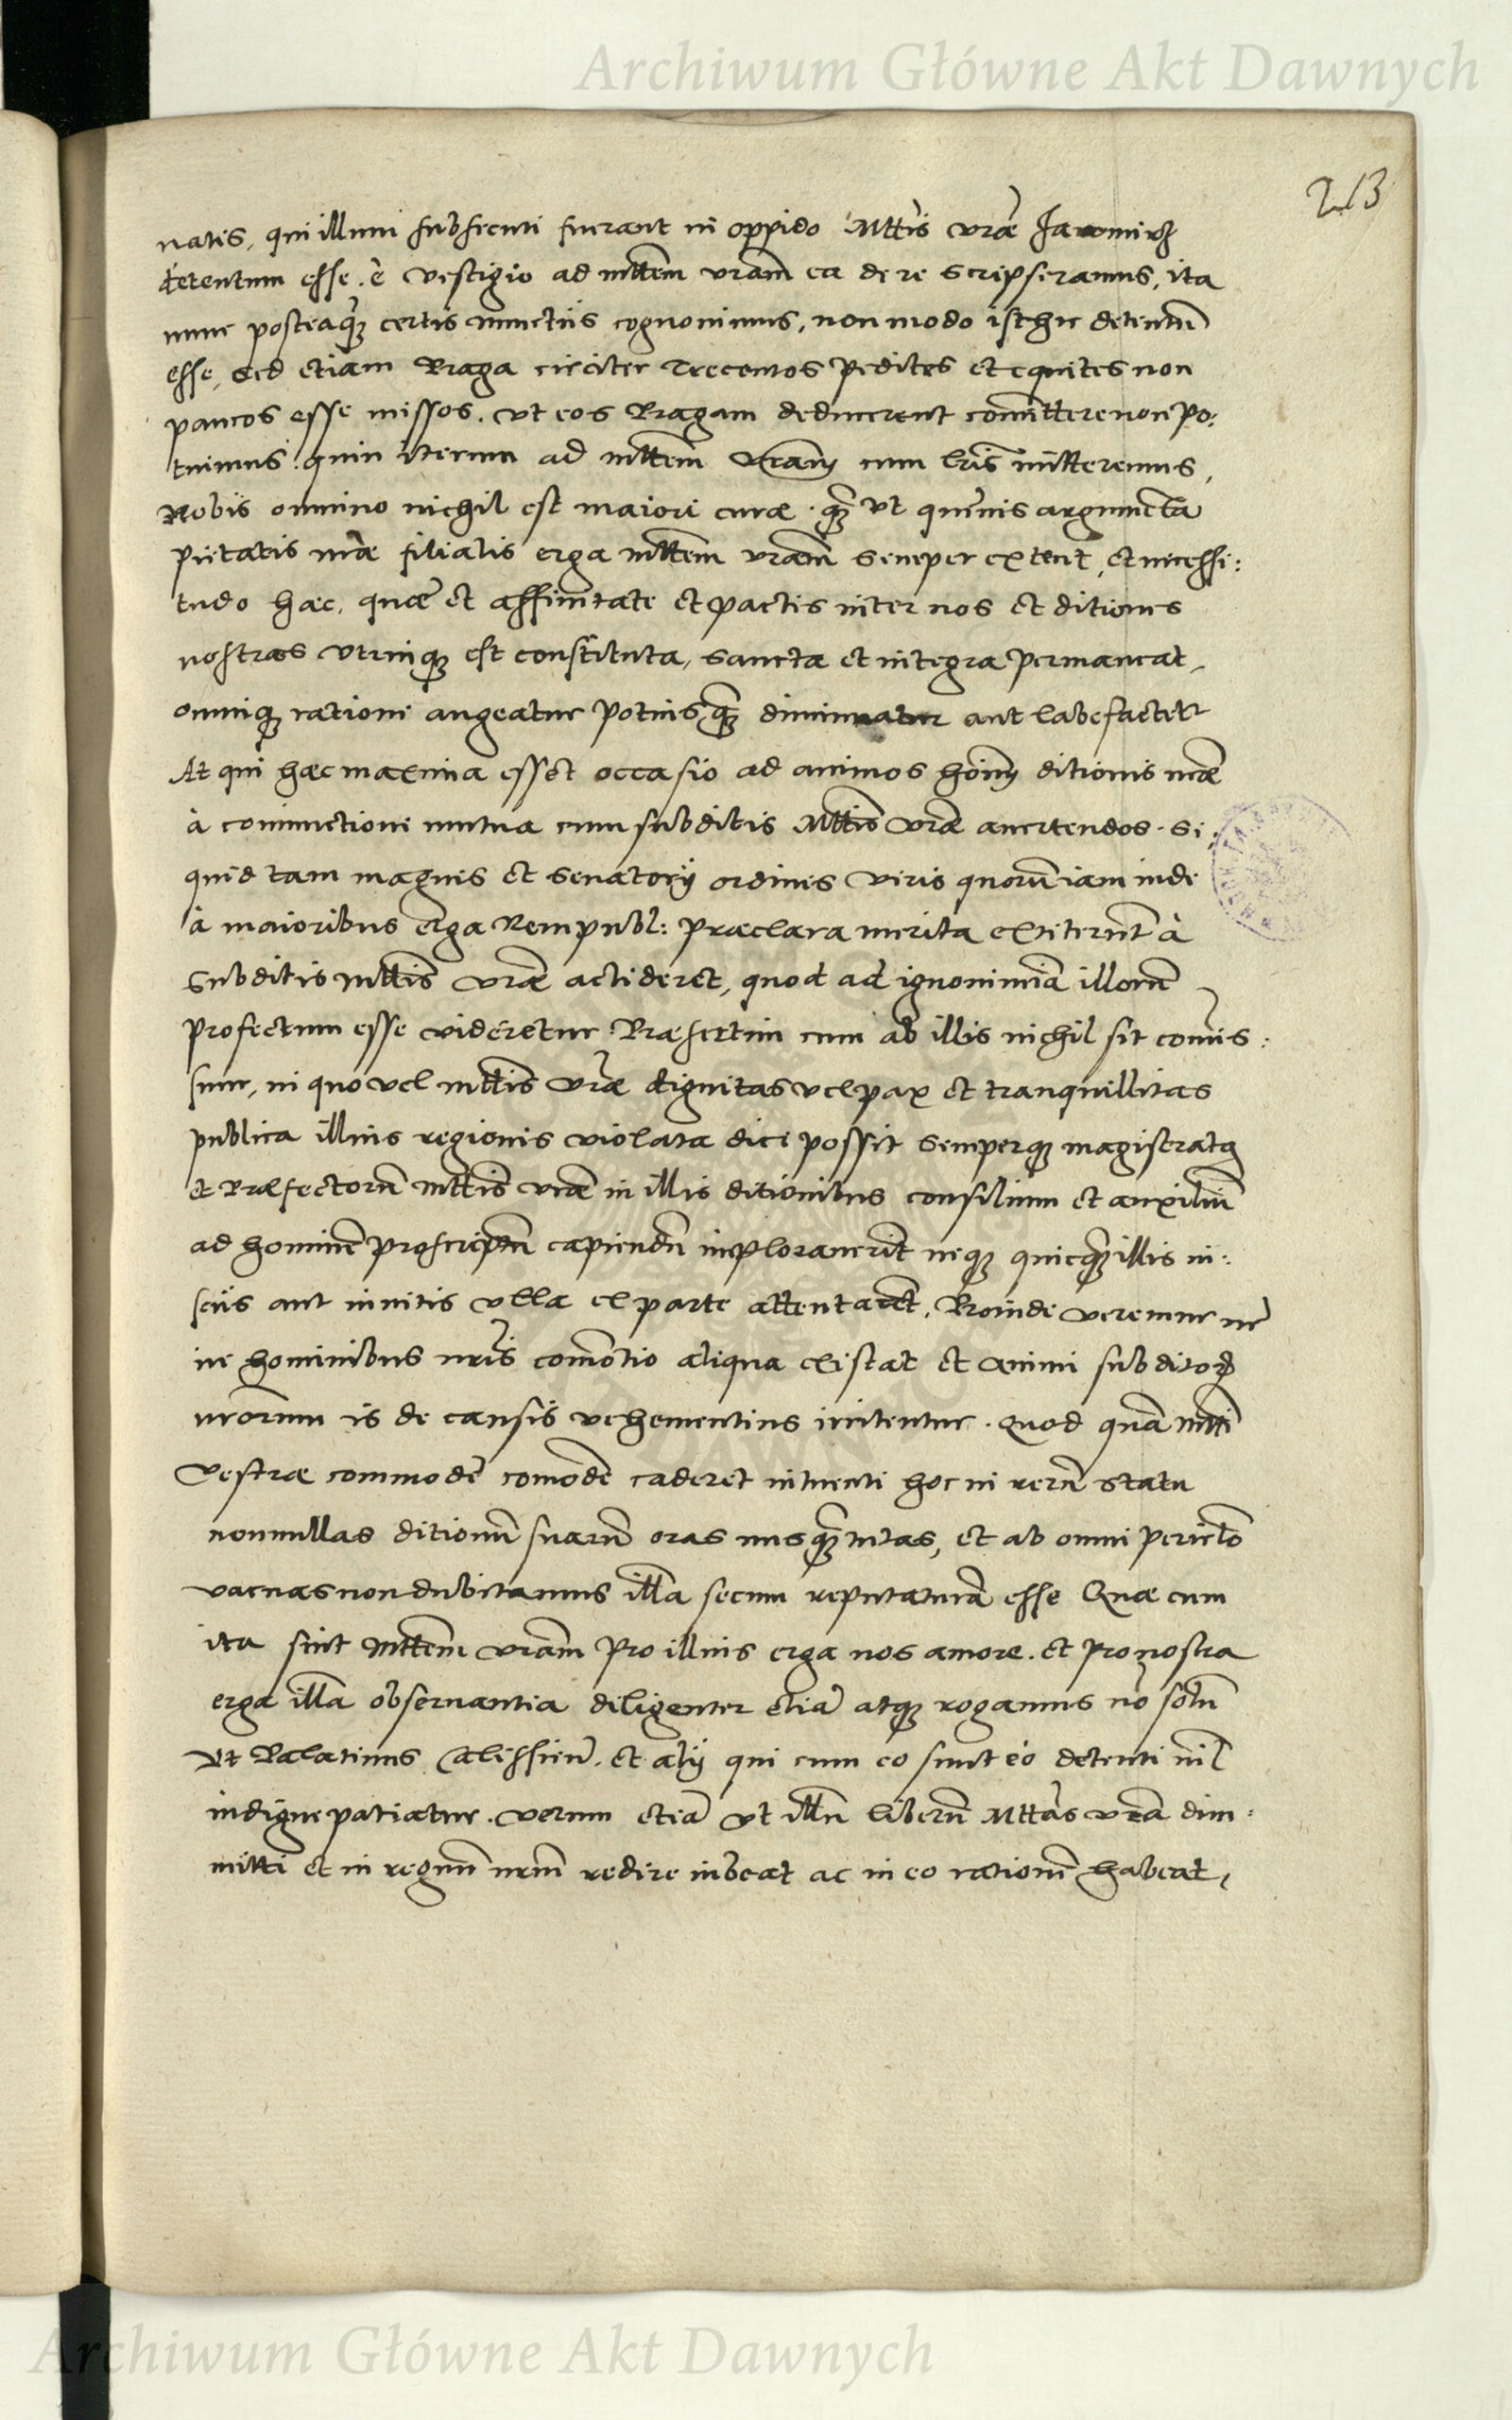 Archiwum Główne Akt Dawnych
213
natis, qui illum subsecuti fuerant in oppido Mttis vrae Jaromirz
detentum esse. è vestigio ad mttem vram ea de re scripseramus, ita
nunc posteaq̃ certis nunctiis cognovimus, non modo isthic detentũ
esse, sed etiam Praga circiter Trecentos pedites et equites non
paucos esse missos. vt eos Pragam deducerent comittere non po:
tuimus. quin iterum ad mttem vram cum lris mitteremus,
Nobis omnino nichil est maiori curae. q̃ vt quevis argumenta
pietatis nrae filialis erga mttem vram semper extent, et necessi:
tudo haec, quae et affinitate et pactis inter nos et ditiones
nostras vtrinq; est constituta, sancta et integra permaneat,
omniq; ratione augeatur potius q̃ diminuatur aut labefactetr
At qui haec maxima esset occasio ad animos hoim ditionis nrae
à coniunctione mutua cum subditis Mttis vrae avertendos. Si
quid tam magnis et senatorij ordinis viris quorũ iam inde
à maioribus erga Rempubl: praeclara merita extiterũt à
subditis mttis vrae accideret, quod ad ignominiã illorũ
profectum esse videretur. Praesertim cum ab illis nichil sit comis:
sum, in quo vel mttis vrae dignitas vel pax et tranquillitas
publica illius regionis violata dici possit semperq; magistratq
et Praefectorũ mttis vrae in illis ditionibus consilium et auxiliũ
ad hominẽ proscriptũ capiendũ imploraverĩt neq; quicq̃ illis in:
sciis aut invitis vlla ex parte attentarĩt. Proinde veremur ne
in hominibus nris comotio aliqua existat et animi subditor
nrorum is de causis vehementius irritentur. Quod quã mtti
Vestrae commode comode caderet intuenti hoc in rerũ statu
nonnullas ditionũ suarũ oras nusq̃ tutas, et ab omni periclo
vacuas non dubitamus illã secum reputaturã esse Quae cum
ita sint mttem vram pro illius erga nos amore. et pro nostra
erga illã observantia diligenter etiã atq; rogamus nõ solũ
Vt Palatinus Calissien. et alij qui cum eo sunt detenti nil
indigne patiatur. verum etiã vt illũ liberũ Mttas vra dim:
mitti et in regnũ nrm redire iubeat ac in eo rationẽ habeat,
Archiwum Główne Akt Dawnych